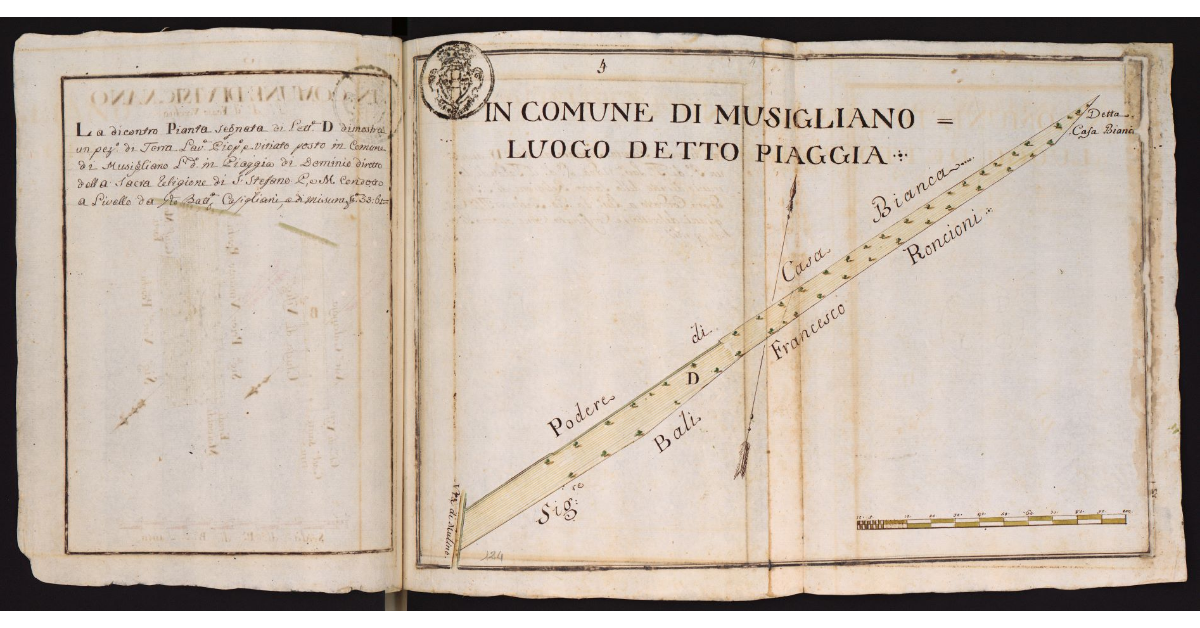 La dicontro Pianta segnata di Lett.ª D dimostra
un pez.º di Terra Lav.ª Piop.ª e vitiato posto in Comune
di Musigliano L.º d.º in Piaggia di Dominio diretto
della Sacra Religione di S. Stefano P. e M. Condotto
a Livello da Batt.ª Casigliani, e di misura
4
IN COMUNE DI MUSIGLIANO =
LUOGO DETTO PIAGGIA
Detta
Casa Bianca
Podere di Casa Bianca
D
Sig:re Bali Francesco Roncioni
Via di Mulino
184